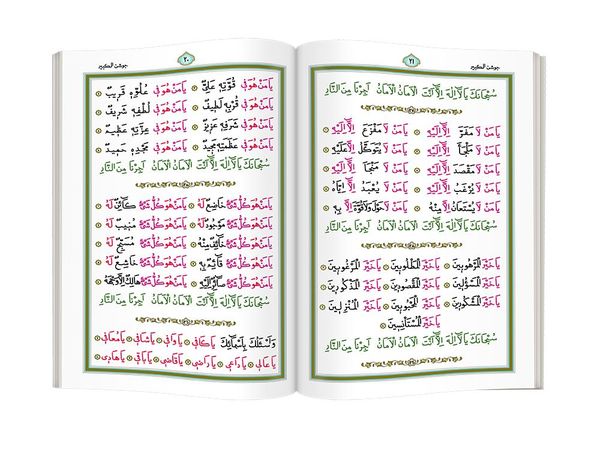 جوشن الكبير
٢٠
يَا مَنْ هُوَ فِي قُوَّتِهِ عَلِيٌّ ۞ يَا مَنْ هُوَ فِي عُلُوِّهِ قَرِيبٌ
يَا مَنْ هُوَ فِي قُرْبِهِ لَطِيفٌ ۞ يَا مَنْ هُوَ فِي لُطْفِهِ شَرِيفٌ
يَا مَنْ هُوَ فِي شَرَفِهِ عَزِيزٌ ۞ يَا مَنْ هُوَ فِي عِزَّتِهِ عَظِيمٌ
يَا مَنْ هُوَ فِي عَظَمَتِهِ مَجِيدٌ ۞ يَا مَنْ هُوَ فِي مَجْدِهِ حَمِيدٌ
سُبْحَانَكَ يَا لَا إِلٰهَ إِلَّا أَنْتَ الْأَمَانُ الْأَمَانُ أَجِرْنَا مِنَ النَّارِ
يَا مَنْ هُوَ كُلُّ شَيْءٍ خَاضِعٌ لَهُ ۞ يَا مَنْ هُوَ كُلُّ شَيْءٍ كَائِنٌ لَهُ
يَا مَنْ هُوَ كُلُّ شَيْءٍ مَوْجُودٌ لَهُ ۞ يَا مَنْ هُوَ كُلُّ شَيْءٍ مُنِيبٌ لَهُ
يَا مَنْ هُوَ كُلُّ شَيْءٍ خَائِفٌ مِنْهُ ۞ يَا مَنْ هُوَ كُلُّ شَيْءٍ مُسَبِّحٌ لَهُ
يَا مَنْ هُوَ كُلُّ شَيْءٍ قَائِمٌ بِهِ ۞ يَا مَنْ هُوَ كُلُّ شَيْءٍ خَاشِعٌ لَهُ
يَا مَنْ هُوَ كُلُّ شَيْءٍ صَائِرٌ إِلَيْهِ ۞ يَا مَنْ هُوَ كُلُّ شَيْءٍ هَالِكٌ إِلَّا وَجْهَهُ
سُبْحَانَكَ يَا لَا إِلٰهَ إِلَّا أَنْتَ الْأَمَانُ الْأَمَانُ أَجِرْنَا مِنَ النَّارِ
وَأَسْئَلُكَ بِأَسْمَائِكَ يَا كَافِي ۞ يَا وَافِي ۞ يَا شَافِي ۞ يَا مُعَافِي
يَا عَالِي ۞ يَا دَاعِي ۞ يَا رَاضِي ۞ يَا قَاضِي ۞ يَا بَاقِي ۞ يَا هَادِي
جوشن الكبير
٢١
سُبْحَانَكَ يَا لَا إِلٰهَ إِلَّا أَنْتَ الْأَمَانُ الْأَمَانُ أَجِرْنَا مِنَ النَّارِ
يَا مَنْ لَا مَفَرَّ إِلَّا إِلَيْهِ ۞ يَا مَنْ لَا مَفْزَعَ إِلَّا إِلَيْهِ
يَا مَنْ لَا مَلْجَأَ إِلَّا إِلَيْهِ ۞ يَا مَنْ لَا يُتَوَكَّلُ إِلَّا عَلَيْهِ
يَا مَنْ لَا مَقْصَدَ إِلَّا إِلَيْهِ ۞ يَا مَنْ لَا مَنْجَأَ إِلَّا إِلَيْهِ
يَا مَنْ لَا يُرْغَبُ إِلَّا إِلَيْهِ ۞ يَا مَنْ لَا يُعْبَدُ إِلَّا إِيَّاهُ
يَا مَنْ لَا يُسْتَعَانُ إِلَّا مِنْهُ ۞ يَا مَنْ لَا حَوْلَ وَلَا قُوَّةَ إِلَّا بِهِ
سُبْحَانَكَ يَا لَا إِلٰهَ إِلَّا أَنْتَ الْأَمَانُ الْأَمَانُ أَجِرْنَا مِنَ النَّارِ
يَا خَيْرَ الْمَرْهُوبِينَ ۞ يَا خَيْرَ الْمَطْلُوبِينَ ۞ يَا خَيْرَ الْمَرْغُوبِينَ
يَا خَيْرَ الْمَسْؤُلِينَ ۞ يَا خَيْرَ الْمَقْصُودِينَ ۞ يَا خَيْرَ الْمَذْكُورِينَ
يَا خَيْرَ الْمَشْكُورِينَ ۞ يَا خَيْرَ الْمَحْبُوبِينَ ۞ يَا خَيْرَ الْمُنْزِلِينَ
يَا خَيْرَ الْمُسْتَأْنِسِينَ
سُبْحَانَكَ يَا لَا إِلٰهَ إِلَّا أَنْتَ الْأَمَانُ الْأَمَانُ أَجِرْنَا مِنَ النَّارِ